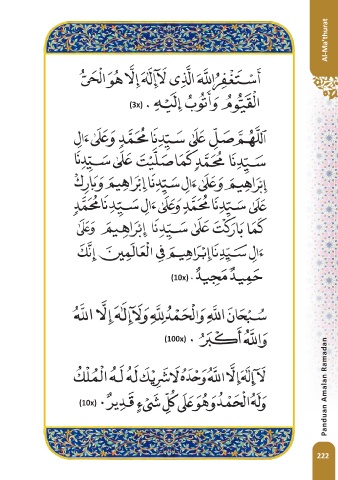 أَسْتَغْفِرُ اللَّهَ الَّذِي لَآ إِلَٰهَ إِلَّا هُوَ الْحَيُّ
الْقَيُّومُ وَأَتُوبُ إِلَيْهِ . (3x)
اَللَّهُمَّ صَلِّ عَلَىٰ سَيِّدِنَا مُحَمَّدٍ وَعَلَىٰ ءَالِ
سَيِّدِنَا مُحَمَّدٍ كَمَا صَلَّيْتَ عَلَىٰ سَيِّدِنَا
إِبْرَاهِيمَ وَعَلَىٰ ءَالِ سَيِّدِنَا إِبْرَاهِيمَ وَبَارِكْ
عَلَىٰ سَيِّدِنَا مُحَمَّدٍ وَعَلَىٰ ءَالِ سَيِّدِنَا مُحَمَّدٍ
كَمَا بَارَكْتَ عَلَىٰ سَيِّدِنَا إِبْرَاهِيمَ وَعَلَىٰ
ءَالِ سَيِّدِنَا إِبْرَاهِيمَ فِي الْعَالَمِينَ إِنَّكَ
حَمِيدٌ مَجِيدٌ . (10x)
سُبْحَانَ اللَّهِ وَالْحَمْدُ لِلَّهِ وَلَآ إِلَٰهَ إِلَّا اللَّهُ
وَاللَّهُ أَكْبَرُ . (100x)
لَآ إِلَٰهَ إِلَّا اللَّهُ وَحْدَهُ لَا شَرِيْكَ لَهُ لَهُ الْمُلْكُ
وَلَهُ الْحَمْدُ وَهُوَ عَلَىٰ كُلِّ شَىْءٍ قَدِيرٌ . (10x)
Al-Ma'thurat
Panduan Amalan Ramadan
222